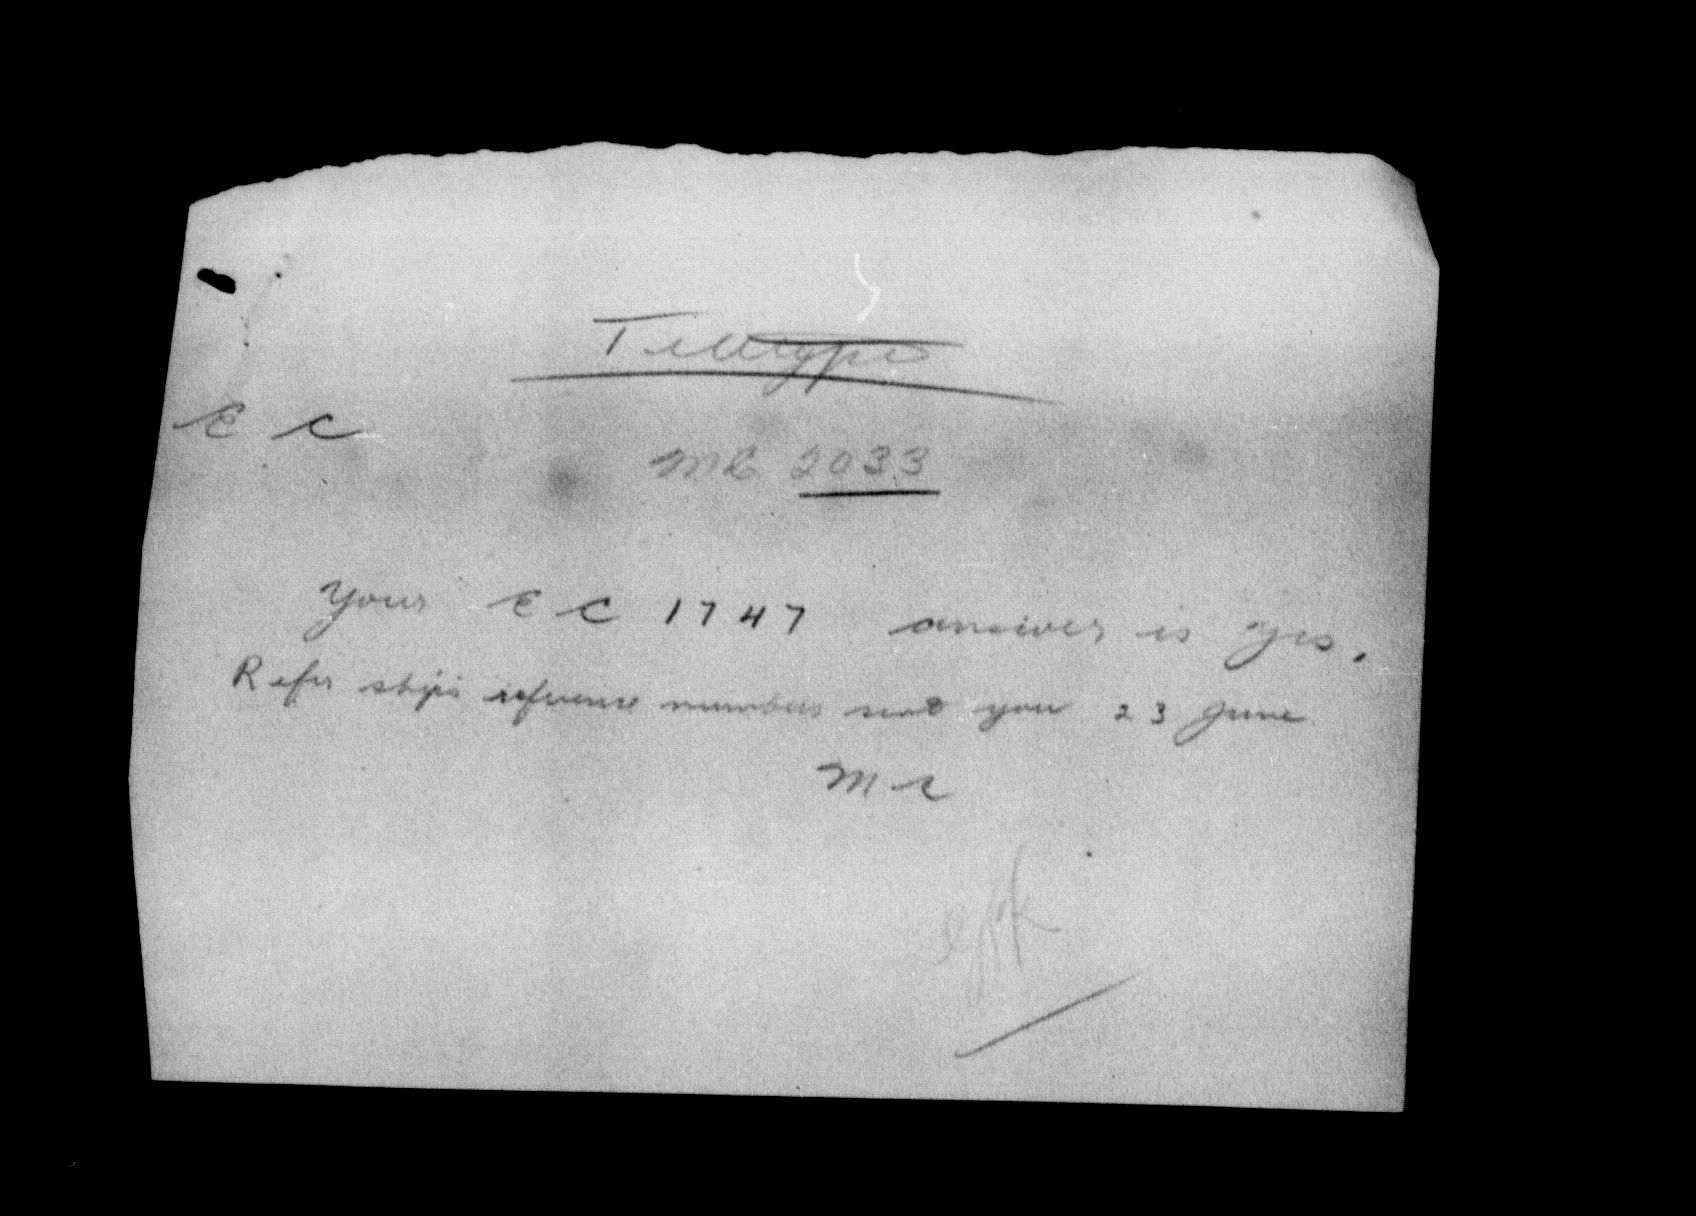 Teletype
E C
M C 2033
Your E C 1747 answer is yes.
Refer ships reference numbers sent you 23 June
M C